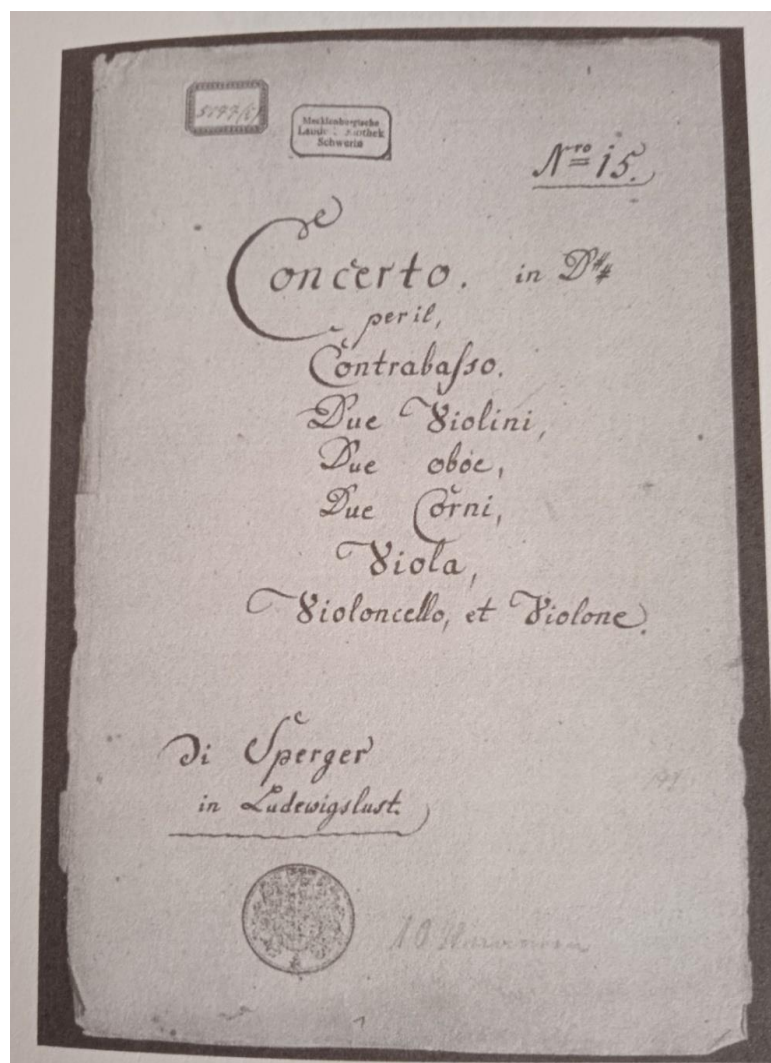 5177/5
Mecklenburgische
Landesbibliothek
Schwerin
Nro 15.
Concerto. in D#
per il,
Contrabaſso.
Due Violini,
Due oboe,
Due Corni,
Viola,
Violoncello, et Violone.
Di Sperger
in Ludewigslust.